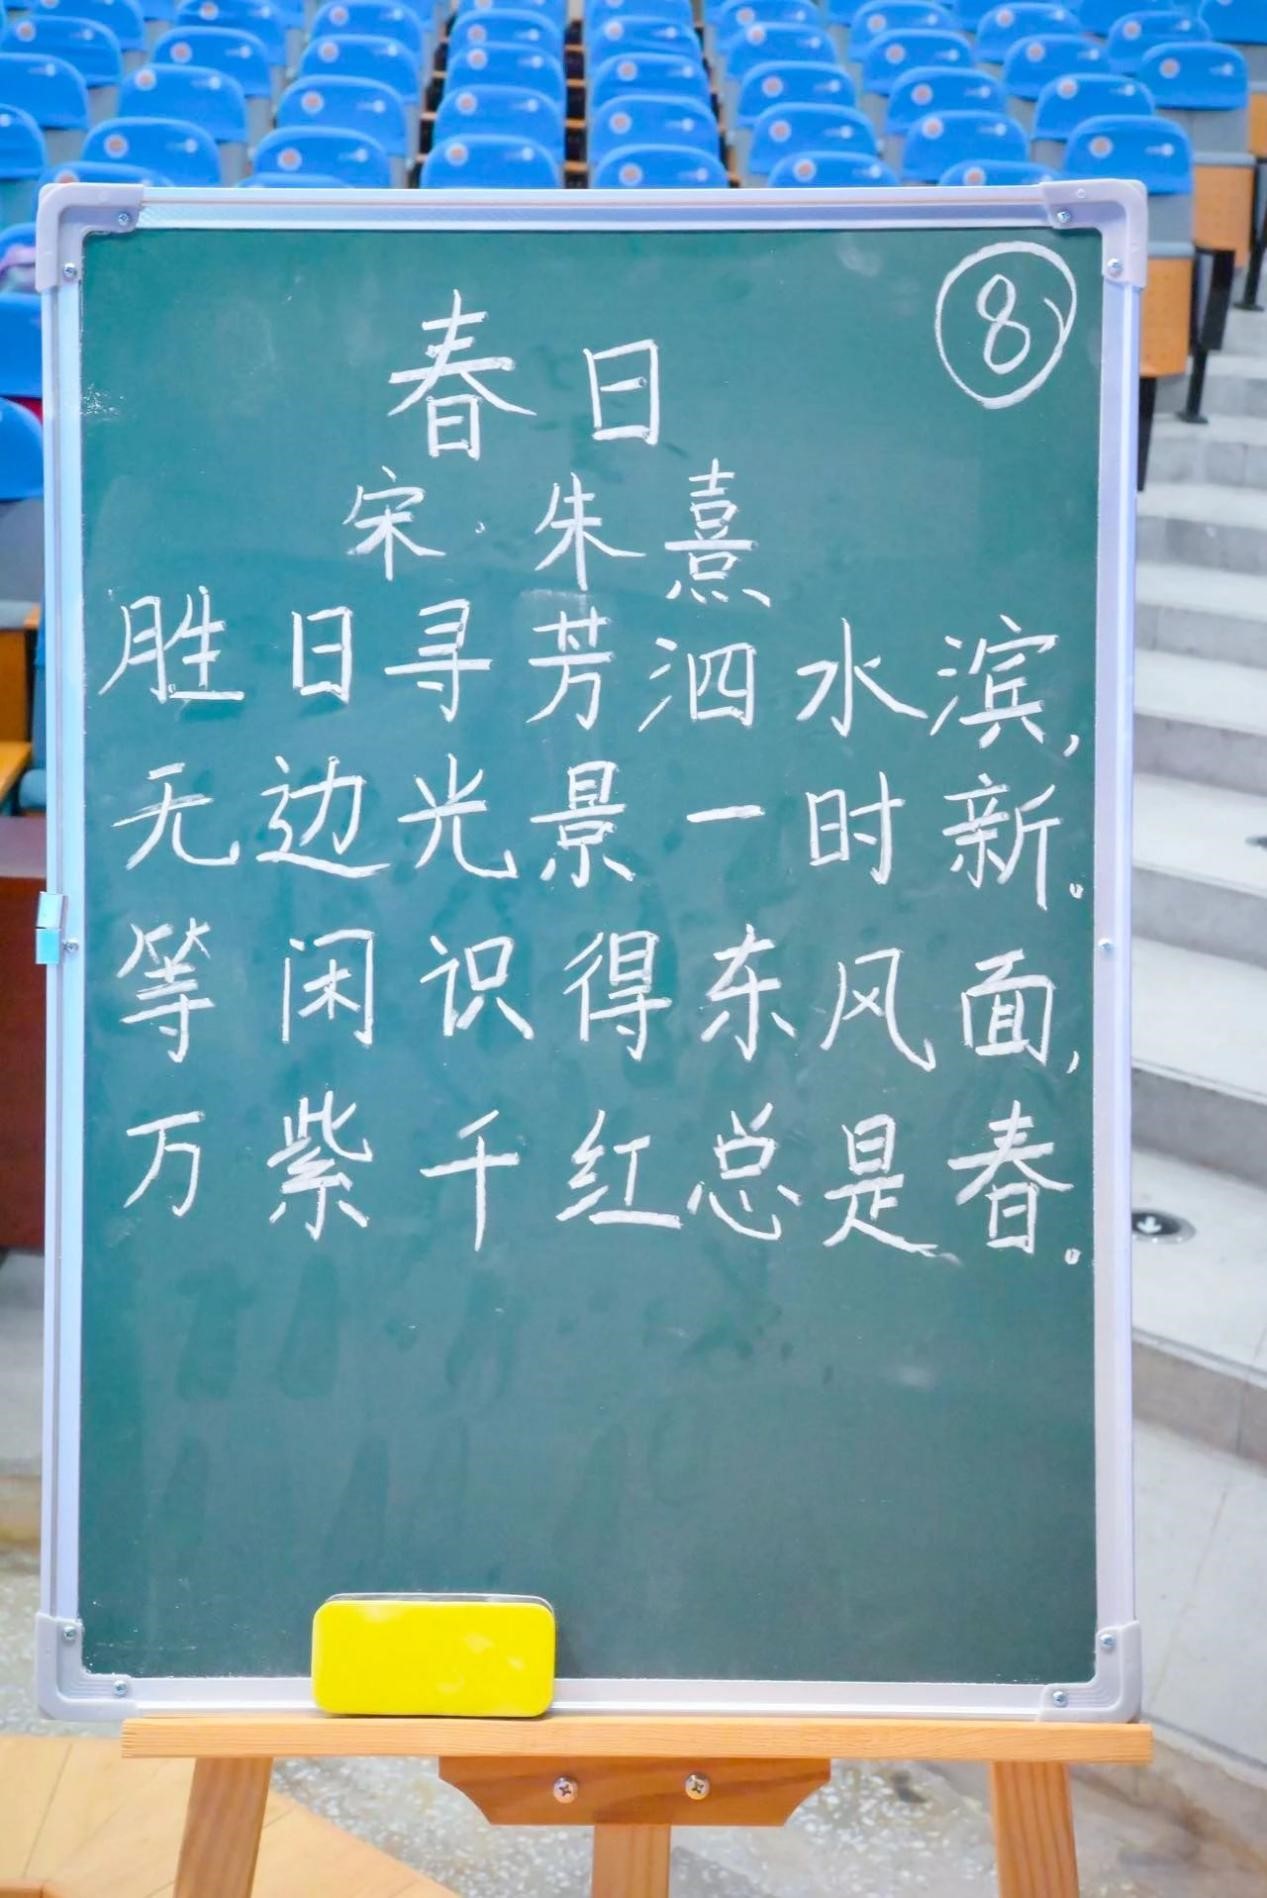 ⑧
春日
宋·朱熹
胜日寻芳泗水滨,
无边光景一时新。
等闲识得东风面,
万紫千红总是春。